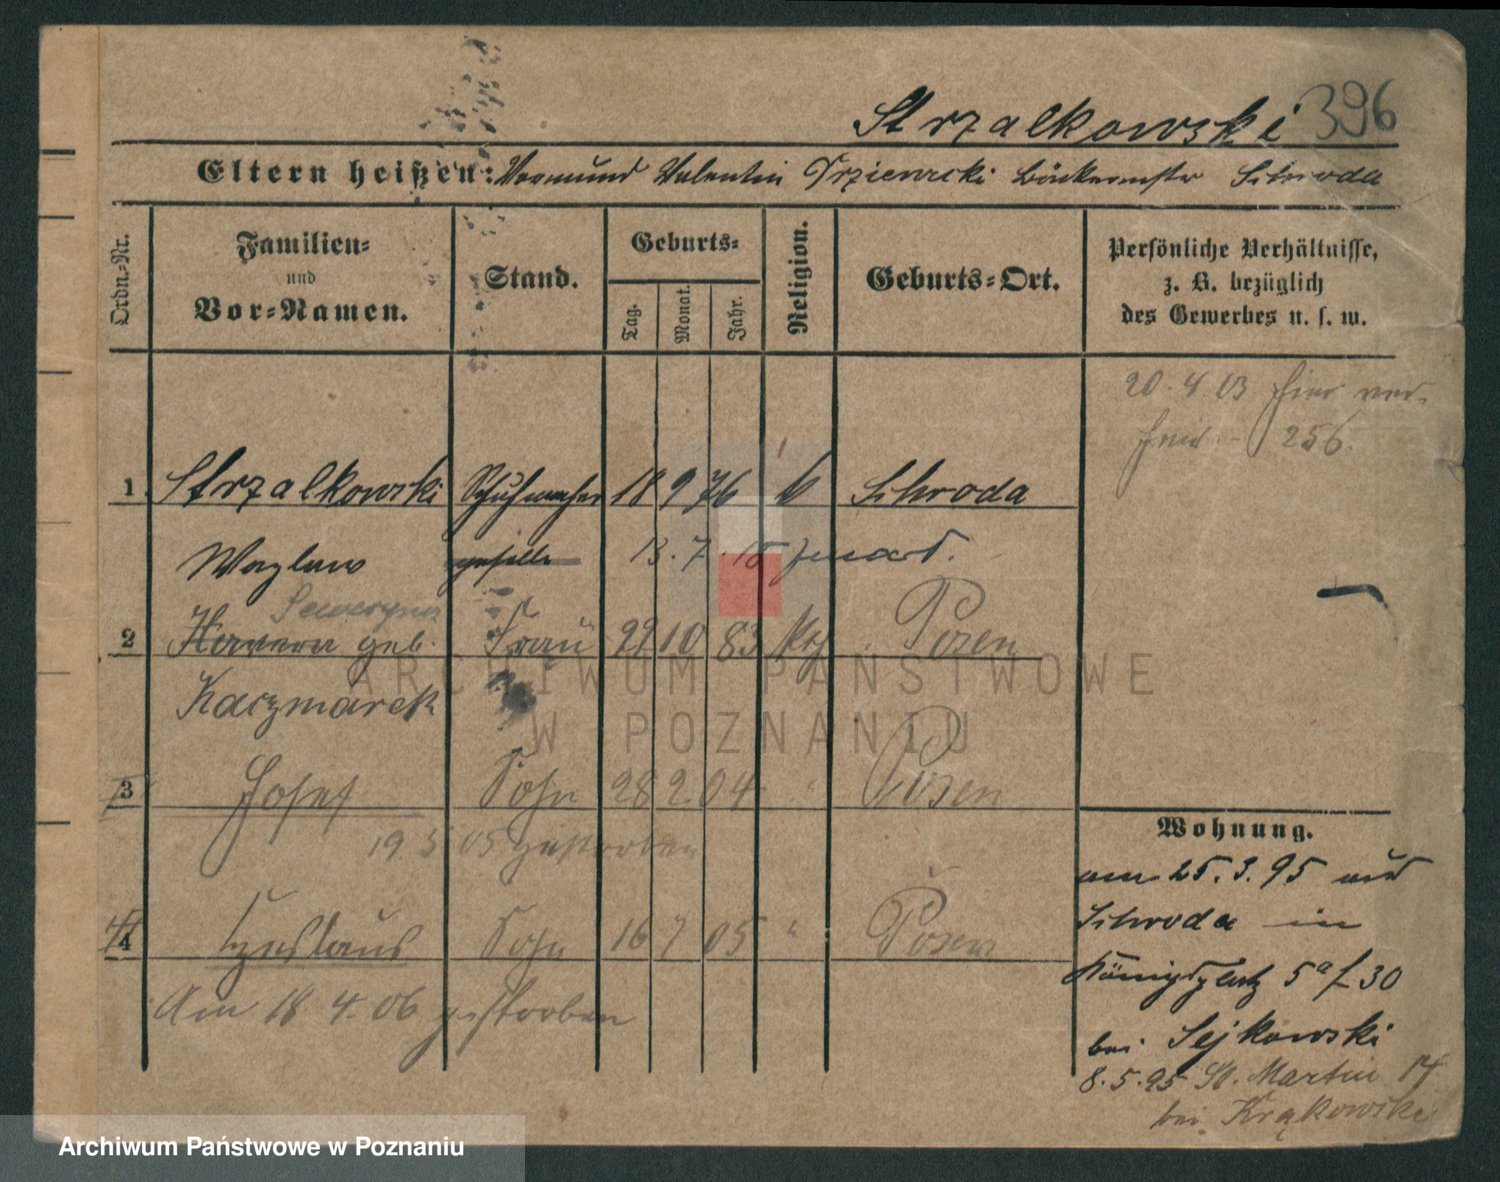 Strzalkowski 396
Eltern heißen: Vormund Valentin Bäckermstr Schroda
Ordn.-Nr.
Familien-
und
Vor-Namen.
Stand.
Geburts-
Tag.
Monat.
Jahr.
Religion.
Geburts-Ort.
Persönliche Verhältnisse,
z. B. bezüglich
des Gewerbes u. s. w.
20. 4. 03 hier
256.
1 Strzalkowski Schuhmacher 18 9 76 k Schroda
Wazlaw geselle 13. 7. 15
Seweryna
2 geb. Frau 29 10 83 Posen
Kaczmarek
3 Josef Sohn 28 2 04 " Posen
19 5 05 gestorben
4 Czeslaus Sohn 16 7 05 " Posen
Am 18 4. 06 gestorben
Wohnung.
am 25. 3. 95 aus
Schroda in
Königsplatz 5a f 30
bei Sejkowski
8. 5. 95 St. Martin 14
bei Krąkowski
ARCHIWUM PAŃSTWOWE
W POZNANIU
Archiwum Państwowe w Poznaniu